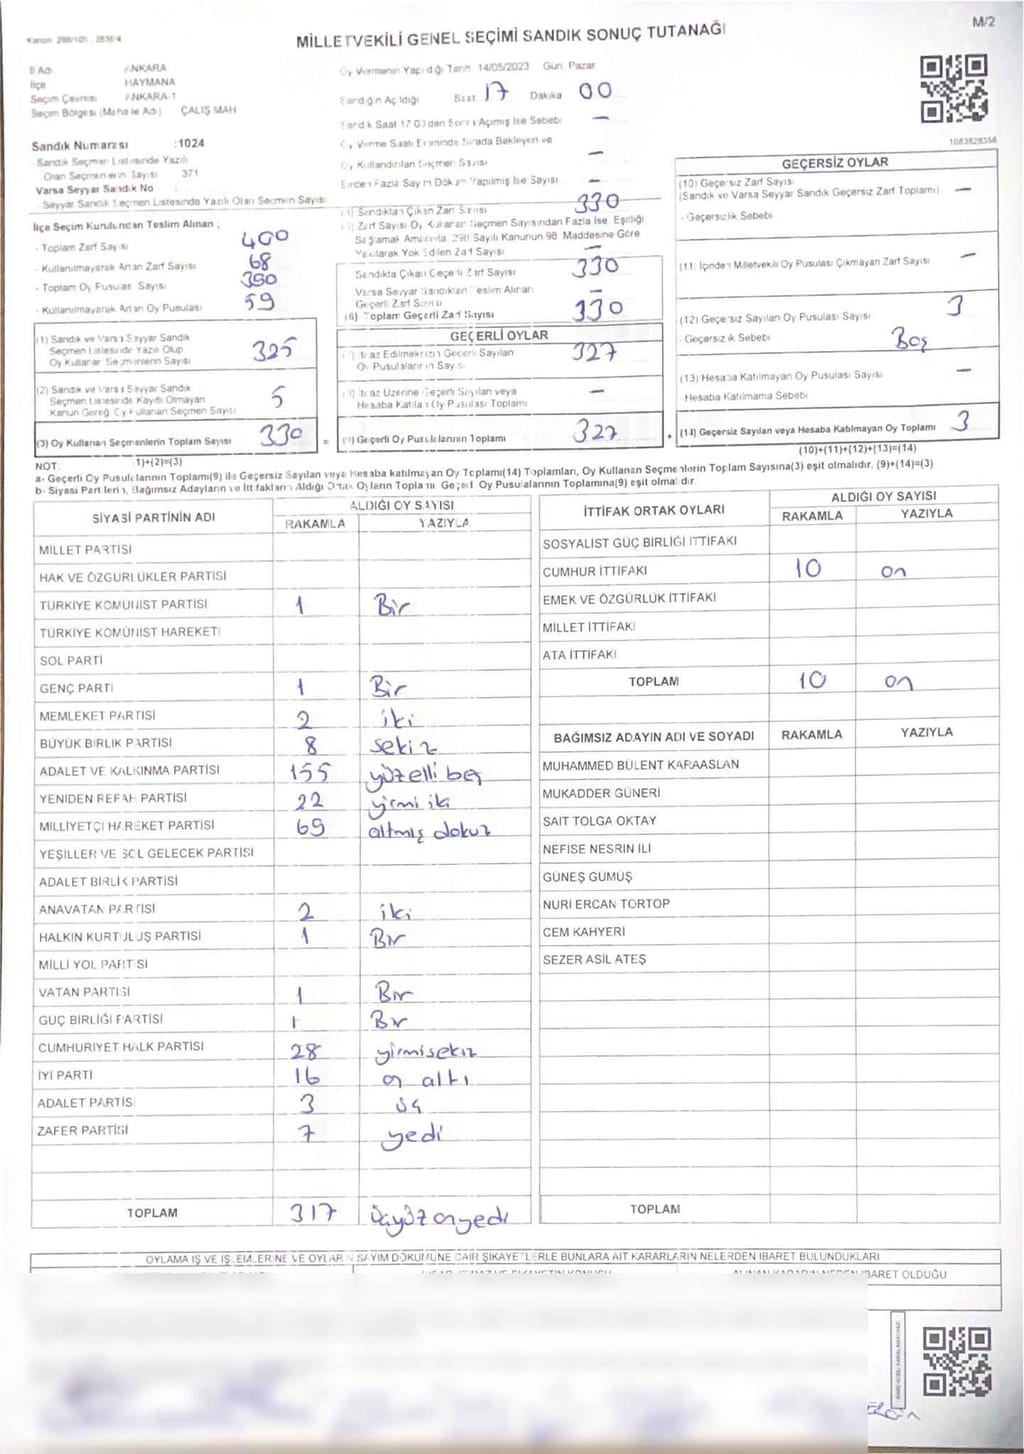 Kanun: 298/105, 2839/4
MİLLETVEKİLİ GENEL SEÇİMİ SANDIK SONUÇ TUTANAĞI
M/2
İl Adı ANKARA
İlçe HAYMANA
Seçim Çevresi ANKARA-1
Seçim Bölgesi (Mahalle Adı) ÇALIŞ MAH
Oy Vermenin Yapıldığı Tarih 14/05/2023 Gün Pazar
Sandığın Açıldığı Saat 17 Dakika 00
Sandık Saat 17.00 den Sonra Açılmış İse Sebebi —
Oy Verme Saati Bitiminde Sırada Bekleyen ve
Oy Kullandırılan Seçmen Sayısı —
Birden Fazla Sayım Döküm Yapılmış İse Sayısı —
1083828356
Sandık Numarası :1024
Sandık Seçmen Listesinde Yazılı
Olan Seçmenlerin Sayısı 371
Varsa Seyyar Sandık No :
Seyyar Sandık Seçmen Listesinde Yazılı Olan Seçmen Sayısı
İlçe Seçim Kurulundan Teslim Alınan ;
- Toplam Zarf Sayısı 400
- Kullanılmayarak Artan Zarf Sayısı 68
- Toplam Oy Pusulası Sayısı 390
- Kullanılmayarak Artan Oy Pusulası 59
(1) Sandık ve Varsa Seyyar Sandık
Seçmen Listesinde Yazılı Olup
Oy Kullanan Seçmenlerin Sayısı 325
(2) Sandık ve Varsa Seyyar Sandık
Seçmen Listesinde Kayıtlı Olmayan
Kanun Gereği Oy Kullanan Seçmen Sayısı 5
(3) Oy Kullanan Seçmenlerin Toplam Sayısı 330
1)+(2)=(3)
Sandıktan Çıkan Zarf Sayısı 330
Zarf Sayısı Oy Kullanan Seçmen Sayısından Fazla İse, Eşitliği
Sağlamak Amacıyla 298 Sayılı Kanunun 98. Maddesine Göre
Yakılarak Yok Edilen Zarf Sayısı —
Sandıkta Çıkan Geçerli Zarf Sayısı 330
Varsa Seyyar Sandıktan Teslim Alınan
Geçerli Zarf Sayısı —
(6) Toplam Geçerli Zarf Sayısı 330
GEÇERLİ OYLAR
İtiraz Edilmeksizin Geçerli Sayılan
Oy Pusulalarının Sayısı 327
İtiraz Üzerine Geçerli Sayılan veya
Hesaba Katılan Oy Pusulası Toplamı —
= (9) Geçerli Oy Pusulalarının Toplamı 327
GEÇERSİZ OYLAR
(10) Geçersiz Zarf Sayısı
(Sandık ve Varsa Seyyar Sandık Geçersiz Zarf Toplamı) —
- Geçersizlik Sebebi
(11) İçinden Milletvekili Oy Pusulası Çıkmayan Zarf Sayısı —
(12) Geçersiz Sayılan Oy Pusulası Sayısı 3
- Geçersizlik Sebebi Boş
(13) Hesaba Katılmayan Oy Pusulası Sayısı —
Hesaba Katılmama Sebebi
+ (14) Geçersiz Sayılan veya Hesaba Katılmayan Oy Toplamı 3
(10)+(11)+(12)+(13)=(14)
NOT:
a- Geçerli Oy Pusulalarının Toplamı(9) ile Geçersiz Sayılan veya Hesaba katılmayan Oy Toplamı(14) Toplamları, Oy Kullanan Seçmenlerin Toplam Sayısına(3) eşit olmalıdır. (9)+(14)=(3)
b- Siyasi Partilerin, Bağımsız Adayların ve İttifakların Aldığı Ortak Oyların Toplamı Geçerli Oy Pusulalarının Toplamına(9) eşit olmalıdır.
SİYASİ PARTİNİN ADI
ALDIĞI OY SAYISI
RAKAMLA YAZIYLA
MİLLET PARTİSİ
HAK VE ÖZGÜRLÜKLER PARTİSİ
TÜRKİYE KOMÜNİST PARTİSİ 1 Bir
TÜRKİYE KOMÜNİST HAREKETİ
SOL PARTİ
GENÇ PARTİ 1 Bir
MEMLEKET PARTİSİ 2 iki
BÜYÜK BİRLİK PARTİSİ 8 sekiz
ADALET VE KALKINMA PARTİSİ 155 yüzelli beş
YENİDEN REFAH PARTİSİ 22 yirmi iki
MİLLİYETÇİ HAREKET PARTİSİ 69 altmış dokuz
YEŞİLLER VE SOL GELECEK PARTİSİ
ADALET BİRLİK PARTİSİ
ANAVATAN PARTİSİ 2 iki
HALKIN KURTULUŞ PARTİSİ 1 Bir
MİLLİ YOL PARTİSİ
VATAN PARTİSİ 1 Bir
GÜÇ BİRLİĞİ PARTİSİ 1 Bir
CUMHURİYET HALK PARTİSİ 28 yirmisekiz
İYİ PARTİ 16 on altı
ADALET PARTİSİ 3 üç
ZAFER PARTİSİ 7 yedi
TOPLAM 317 üçyüz onyedi
İTTİFAK ORTAK OYLARI
ALDIĞI OY SAYISI
RAKAMLA YAZIYLA
SOSYALİST GÜÇ BİRLİĞİ İTTİFAKI
CUMHUR İTTİFAKI 10 on
EMEK VE ÖZGÜRLÜK İTTİFAKI
MİLLET İTTİFAKI
ATA İTTİFAKI
TOPLAM 10 on
BAĞIMSIZ ADAYIN ADI VE SOYADI RAKAMLA YAZIYLA
MUHAMMED BÜLENT KARAASLAN
MUKADDER GÜNERİ
SAİT TOLGA OKTAY
NEFİSE NESRİN İLİ
GÜNEŞ GÜMÜŞ
NURİ ERCAN TORTOP
CEM KAHYERİ
SEZER ASİL ATEŞ
TOPLAM
OYLAMA İŞ VE İŞLEMLERİNE VE OYLARIN SAYIM DÖKÜMÜNE DAİR ŞİKAYETLERLE BUNLARA AİT KARARLARIN NELERDEN İBARET BULUNDUKLARI
ALINAN KARARIN NEDEN İBARET OLDUĞU